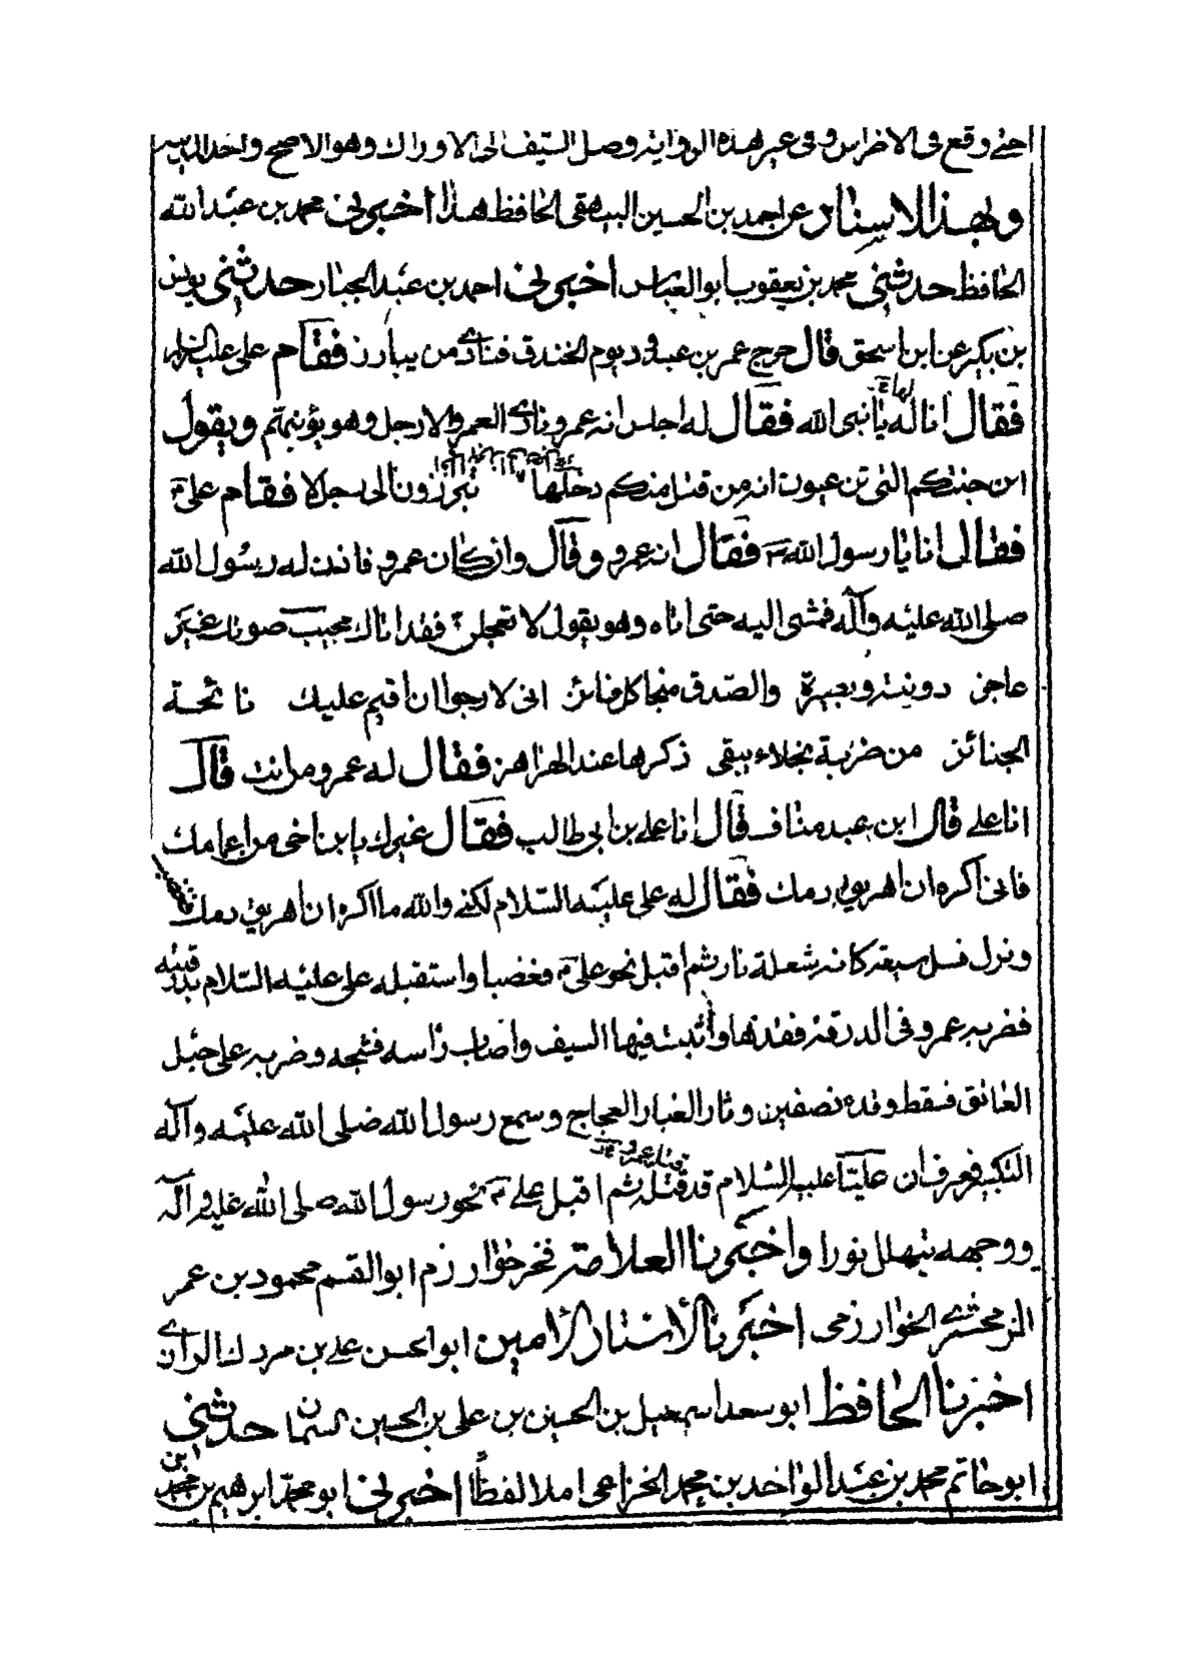 حتى وقع فى الاضراس وفى غير هذه الرواية وصل السيف الى الاوراك وهو الاصح واخذ
وبهذا الاسناد عن احمد بن الحسين البيهقى الحافظ هذا اخبرنى محمد بن عبد الله
الحافظ حدثنى محمد بن يعقوب ابو العباس اخبرنى احمد بن عبد الجبار حدثنى يونس
بن بكير عن ابن اسحق قال خرج عمر بن عبد ود يوم الخندق فنادى من يبارز فقام على عليه السلام
فقال انا له يا نبى الله فقال له اجلس انه عمرو نادى العمرو الا رجل وهو يؤنبهم ويقول
اين جنتكم التى تزعمون انه من قتل منكم دخلها تبرزون الى رجلا فقام على ع
فقال انا يا رسول الله ص فقال انه عمرو وقال وان كان عمرو فاذن له رسول الله
صلى الله عليه وآله فمشى اليه حتى اتاه وهو يقول لا تعجلن فقد اتاك مجيب صوتك غير
عاجز ذو نية وبصيرة والصدق منجا كل فائز انى لارجوا ان اقيم عليك نائحة
الجنائز من ضربة نجلاء يبقى ذكرها عند الهزاهز فقال له عمرو من انت قال
انا على قال ابن عبد مناف قال انا على بن ابى طالب فقال غيرك يا بن اخى من اعمامك
فانى اكره ان اهريق دمك فقال له على عليه السلام لكنى والله ما اكره ان اهريق دمك فغضب
ونزل فسل سيفه كانه شعلة نار ثم اقبل نحو على ع مغضبا واستقبله على عليه السلام بدرقته
فضربه عمرو فى الدرقة فقدها واثبت فيها السيف واصاب راسه فشجه وضربه على حبل
العاتق فسقط وقده نصفين وثار الغبار العجاج وسمع رسول الله صلى الله عليه وآله
التكبير فعرف ان عليا عليه السلام قد قتله ثم اقبل على ع نحو رسول الله صلى الله عليه وآله
ووجهه يتهلل نورا واخبرنا العلامة فخر خوارزم ابو القسم محمود بن عمر
الزمخشرى الخوارزمى اخبرنا الاستاذ الامين ابو الحسن على بن مردك الرازى
اخبرنا الحافظ ابو سعد اسمعيل بن الحسين بن على بن الحسين السمان حدثنى
ابو حاتم محمد بن عبد الواحد بن محمد الخزاعى املا لفظا اخبرنى ابو محمد ابرهيم بن محمد ابن